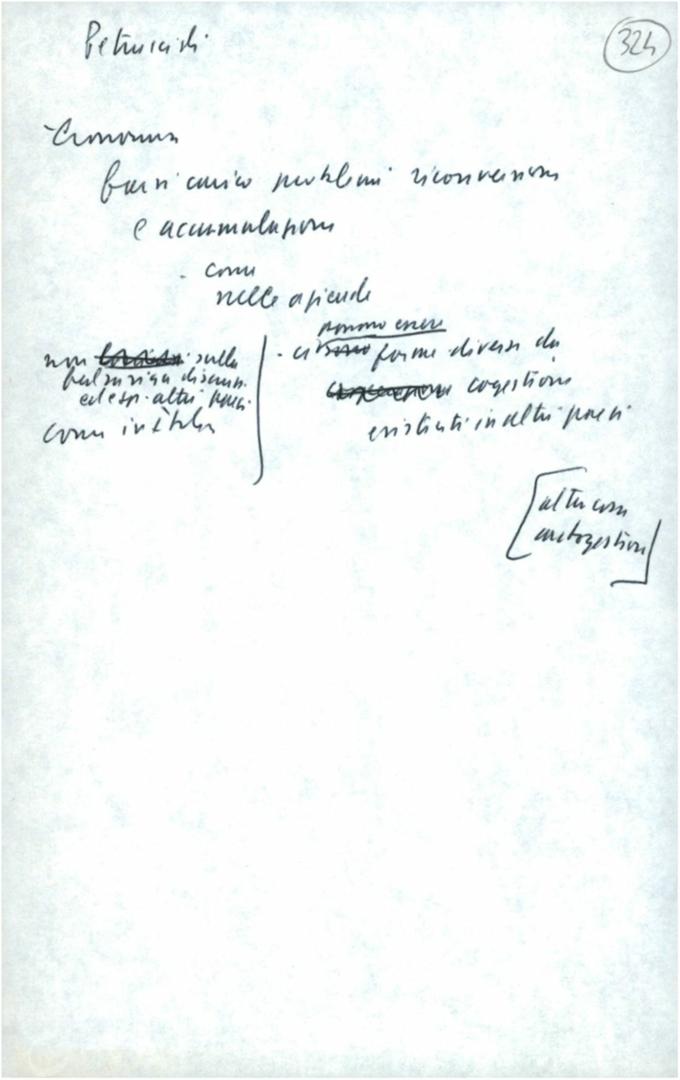 Petruccioli
324
Economia
farsi carico problemi riconversione
e accumulazione
- come
nelle aziende
possono essere
- ci sono forme diverse da
cogestione
esistenti in altri paesi
non sulla
falsariga discuss.
ed esp. altri paesi
come in Italia
[altra cosa
autogestione]